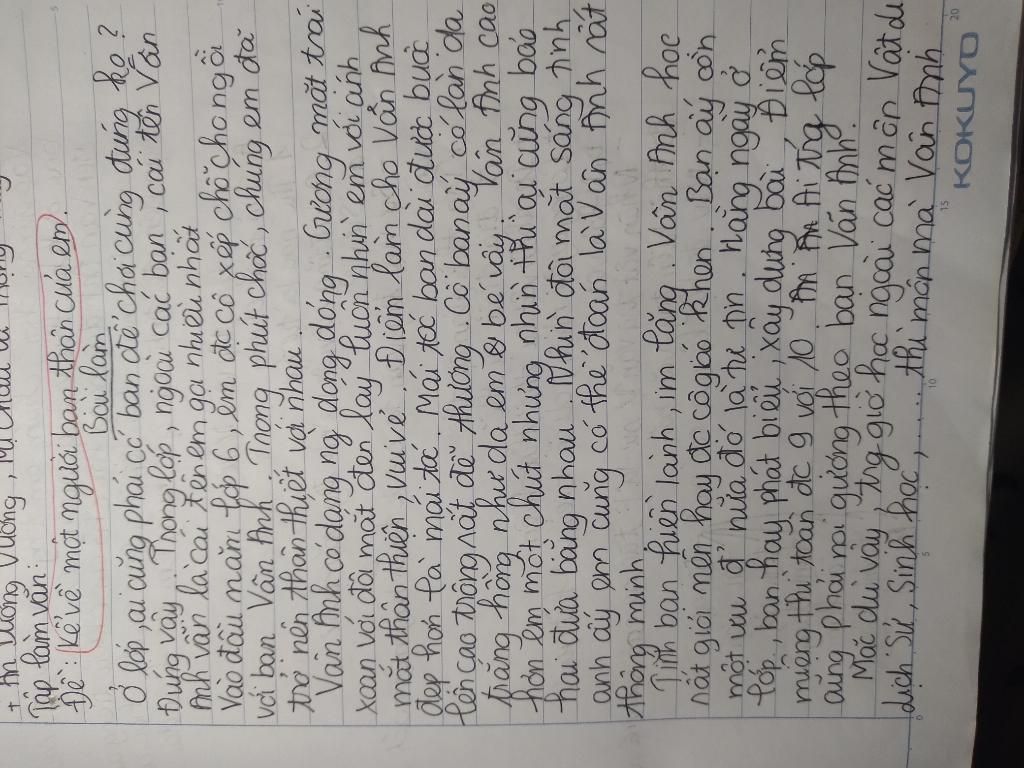 + An Dương Vương, Mị Châu
Tập làm văn:
Đề: Kể về một người bạn thân của em.
Bài làm
Ở lớp ai cũng phải có bạn để chơi cùng đúng ko?
Đúng vậy. Trong lớp, ngoài các bạn, cái tên Vân
Anh vẫn là cái tên em ga nhiều nhất.
Vào đầu năm lớp 6, em đc cô xếp chỗ cho ngồi
với bạn Vân Anh. Trong phút chốc, chúng em đã
trở nên thân thiết với nhau.
Vân Anh có dáng ng dong dỏng. Gương mặt trái
xoan với đôi mắt đen láy luôn nhìn em với ánh
mắt thân thiện, vui vẻ. Điểm làm cho Vân Anh
đẹp hơn là mái tó. Mái tóc bạn dài được buộc
lên cao trông rất dễ thương. Cô bạn ấy có làn da
trắng hồng như da em bé vậy. Vân Anh cao
hơn em một chút nhưng nhìn thì ai cũng bảo
hai đứa bằng nhau. Nhìn đôi mắt sáng tinh
anh ấy em cũng có thể đoán là Vân Anh rất
thông minh.
Tính bạn hiền lành, im lặng. Vân Anh học
rất giỏi nên hay đc cô giáo khen. Bạn ấy còn
một ưu đ' nữa đó là tự tin. Hằng ngày ở
lớp, bạn hay phát biểu, xây dựng bài. Điểm
miệng thì toàn đc 9 với 10. Ai trg lớp
cũng phải noi gương theo bạn Vân Anh.
Mặc dù vậy, trg giờ học ngoài các môn Vật lí,
Lịch Sử, Sinh học,... thì môn mà Vân Anh
KOKUYO
5
10
15
20